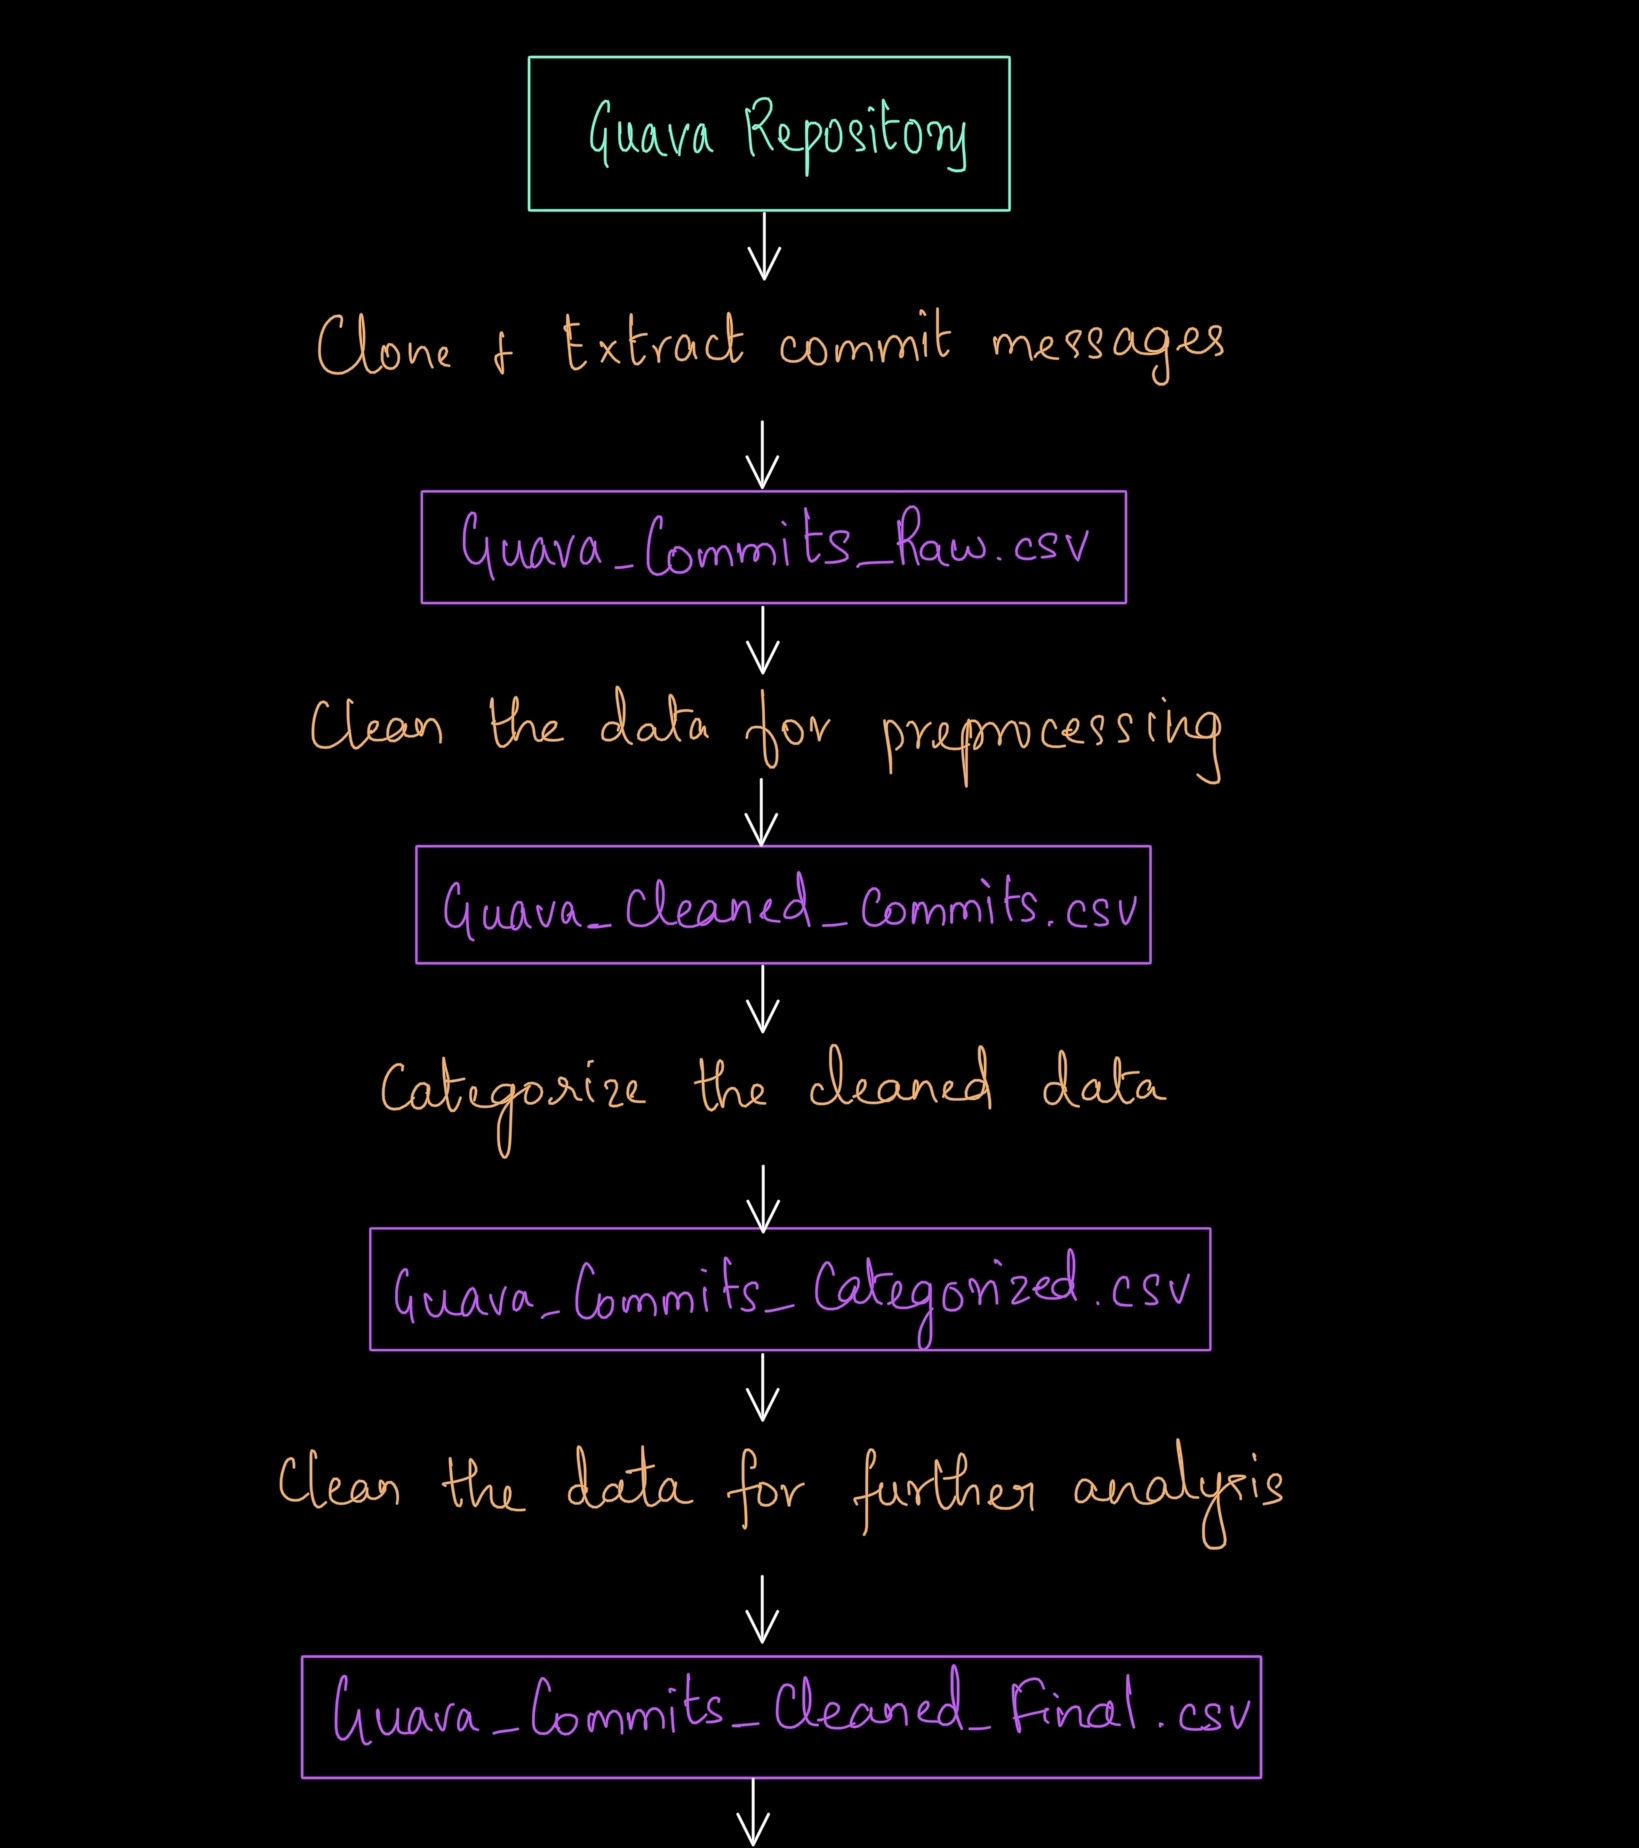 Guava Repository
Clone & Extract commit messages
Guava_Commits_Raw.csv
Clean the data for preprocessing
Guava_Cleaned_Commits.csv
Categorize the cleaned data
Guava_Commits_Categorized.csv
Clean the data for further analysis
Guava_Commits_Cleaned_Final.csv